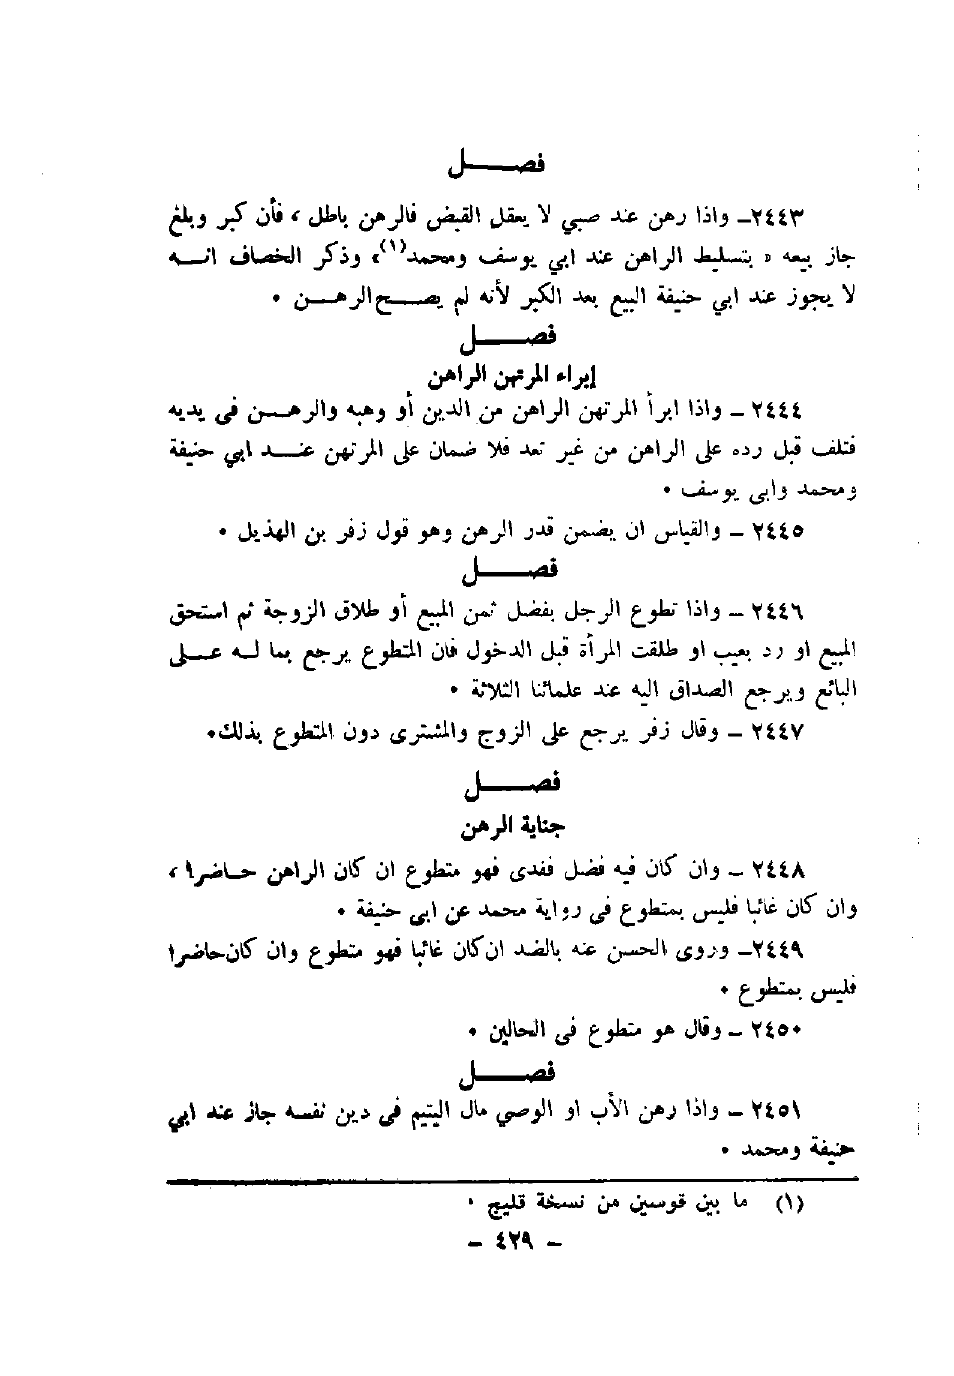 فصـــــل
٢٤٤٣ـ واذا رهن عند صبي لا يعقل القبض فالرهن باطل ، فأن كبر وبلغ
جاز بيعه « بتسليط الراهن عند ابي يوسف ومحمد(١)» وذكر الخصاف انــه
لا يجوز عند ابي حنيفة البيع بعد الكبر لأنه لم يصـــح الرهـــن ٠
فصـــــل
إبراء المرتهن الراهن
٢٤٤٤ ـ واذا ابرأ المرتهن الراهن من الدين أو وهبه والرهـــن فى يديه
فتلف قبل رده على الراهن من غير تعد فلا ضمان على المرتهن عنـــد ابي حنيفة
ومحمد وابى يوسف ٠
٢٤٤٥ ـ والقياس ان يضمن قدر الرهن وهو قول زفر بن الهذيل ٠
فصـــــل
٢٤٤٦ ـ واذا تطوع الرجل بفضل ثمن المبيع أو طلاق الزوجة ثم استحق
المبيع او رد بعيب او طلقت المرأة قبل الدخول فان المتطوع يرجع بما لــه علــى
البائع ويرجع الصداق اليه عند علمائنا الثلاثة ٠
٢٤٤٧ ـ وقال زفر يرجع على الزوج والمشترى دون المتطوع بذلك٠
فصـــــل
جناية الرهن
٢٤٤٨ ـ وان كان فيه فضل ففدى فهو متطوع ان كان الراهن حــاضرا ،
وان كان غائبا فليس بمتطوع فى رواية محمد عن ابى حنيفة ٠
٢٤٤٩ـ وروى الحسن عنه بالضد ان كان غائبا فهو متطوع وان كان حاضرا
فليس بمتطوع ٠
٢٤٥٠ ـ وقال هو متطوع فى الحالين ٠
فصـــــل
٢٤٥١ ـ واذا رهن الأب او الوصي مال اليتيم فى دين نفسه جاز عند ابي
حنيفة ومحمد ٠
(١) ما بين قوسين من نسخة قليج ٠
ـ ٤٢٩ ـ